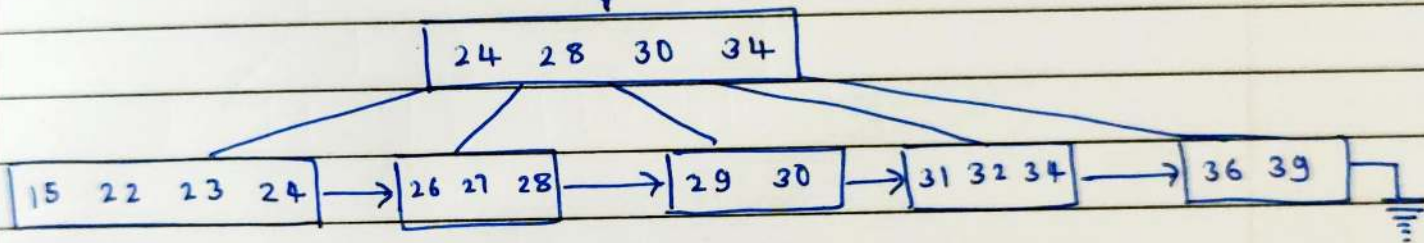 24 28 30 34
15 22 23 24 26 27 28 29 30 31 32 34 36 39